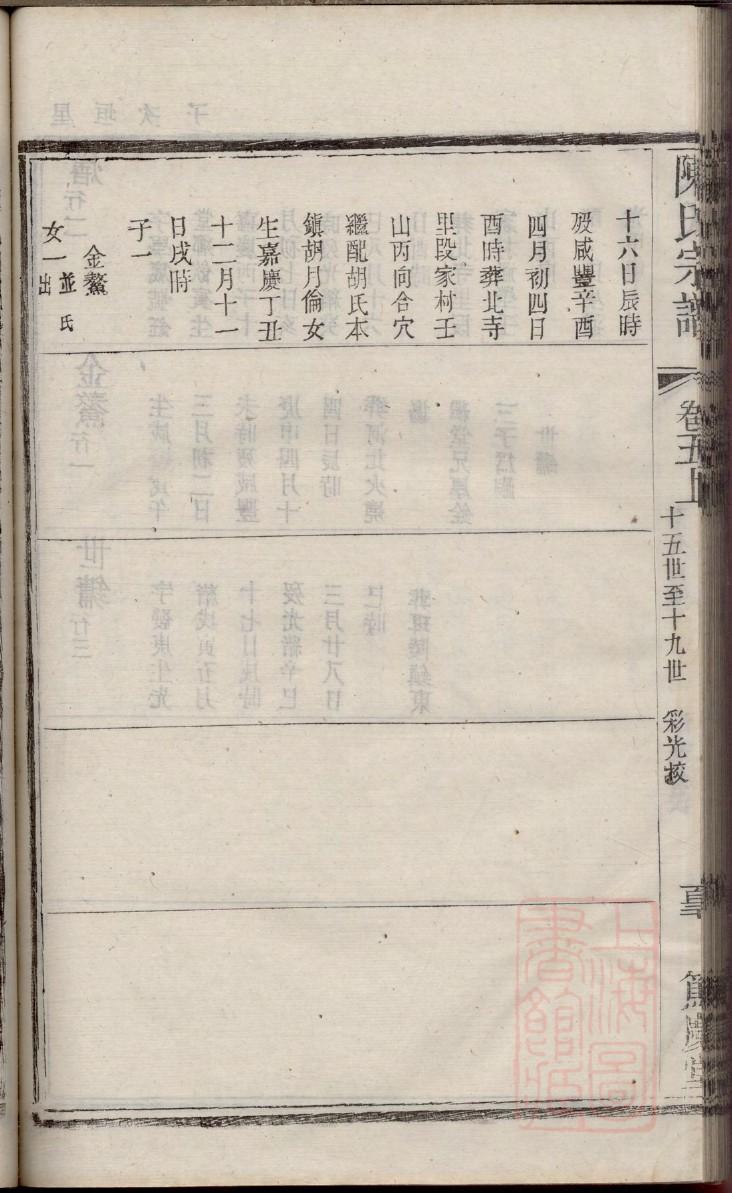 陳氏宗譜
卷五上
十五世至十九世
彩光挍
亨
篤慶堂
十六日辰時
殁咸豐辛酉
四月初四日
酉時葬北寺
里段家村壬
山丙向合穴
繼配胡氏本
鎮胡月倫女
生嘉慶丁丑
十二月十一
日戌時
子一
金鰲
女一並氏出
上海圖書館藏